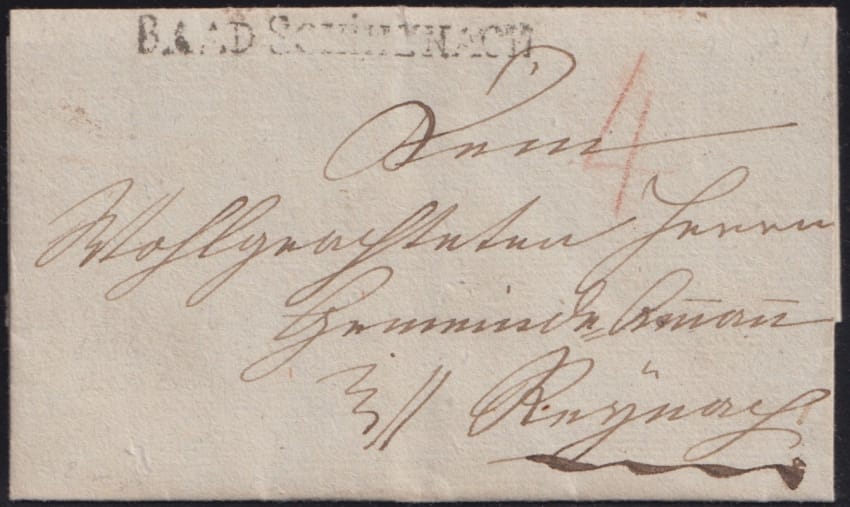 BAAD SCHINZNACH
4
Dem
Wohlgeachteten Herrn
Gemeinde-Am̅an̅
zu
Reÿnach